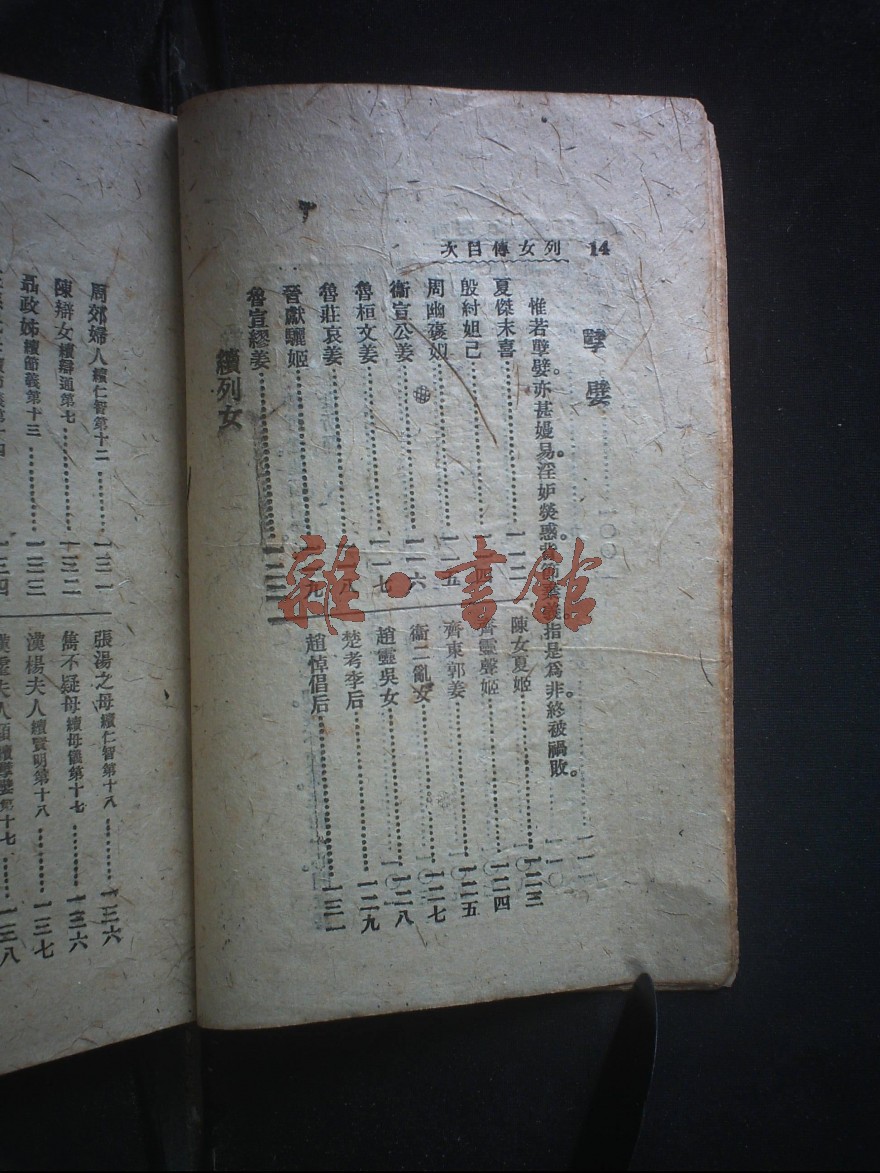 14
列女傳目次
孽嬖
惟若孽嬖。亦甚嫚易。淫妒熒惑。背節棄義。指是爲非。終被禍敗。
夏傑末喜
殷紂妲己
周幽褒姒……一一五
衞宣公姜……一一六
魯桓文姜……一一七
魯莊哀姜
晉獻驪姬
魯宣繆姜
陳女夏姬……一二三
齊靈聲姬……一二四
齊東郭姜……一二五
衞二亂女……一二七
趙靈吳女……一二八
楚考李后……一二九
趙悼倡后……一三一
續列女
周郊婦人續仁智第十二……一三一
陳辯女續辯通第七……一三二
聶政姊續節義第十三……一三三
張湯之母續仁智第十八……一三六
雋不疑母續母儀第十七……一三六
漢楊夫人續賢明第十八……一三七
雜·書館